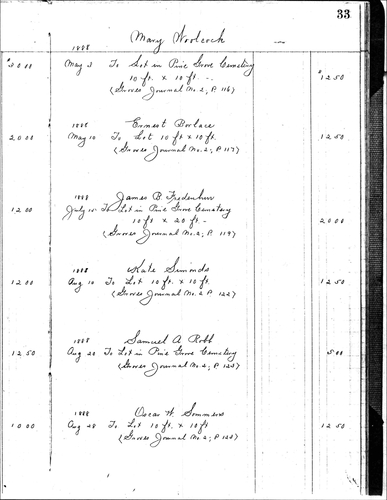 33
Mary Woolcock
1888
$20 00 May 3 To Lot in Pine Grove Cemetery
10 ft. x 10 ft. $12 50
(Groves Journal No. 2, P. 116)
1888 Ernest Borlace
20 00 May 10 To Lot 10 ft x 10 ft. 12 50
(Groves Journal No. 2, P. 117)
1888 James B.
12 00 July 15 To Lot in Pine Grove Cemetery
10 ft x 20 ft. 20 00
(Groves Journal No. 2, P. 119)
1888 Kate Simonds
12 00 Aug 10 To Lot 10 ft. x 10 ft. 12 50
(Groves Journal No. 2 P. 122)
1888 Samuel A Robb
12 50 Aug 20 To Lot in Pine Grove Cemetery 5 00
(Groves Journal No. 2, P. 123)
1888 Oscar W. Sommers
10 00 Aug 28 To Lot 10 ft. x 10 ft 12 50
(Groves Journal No. 2, P. 123)